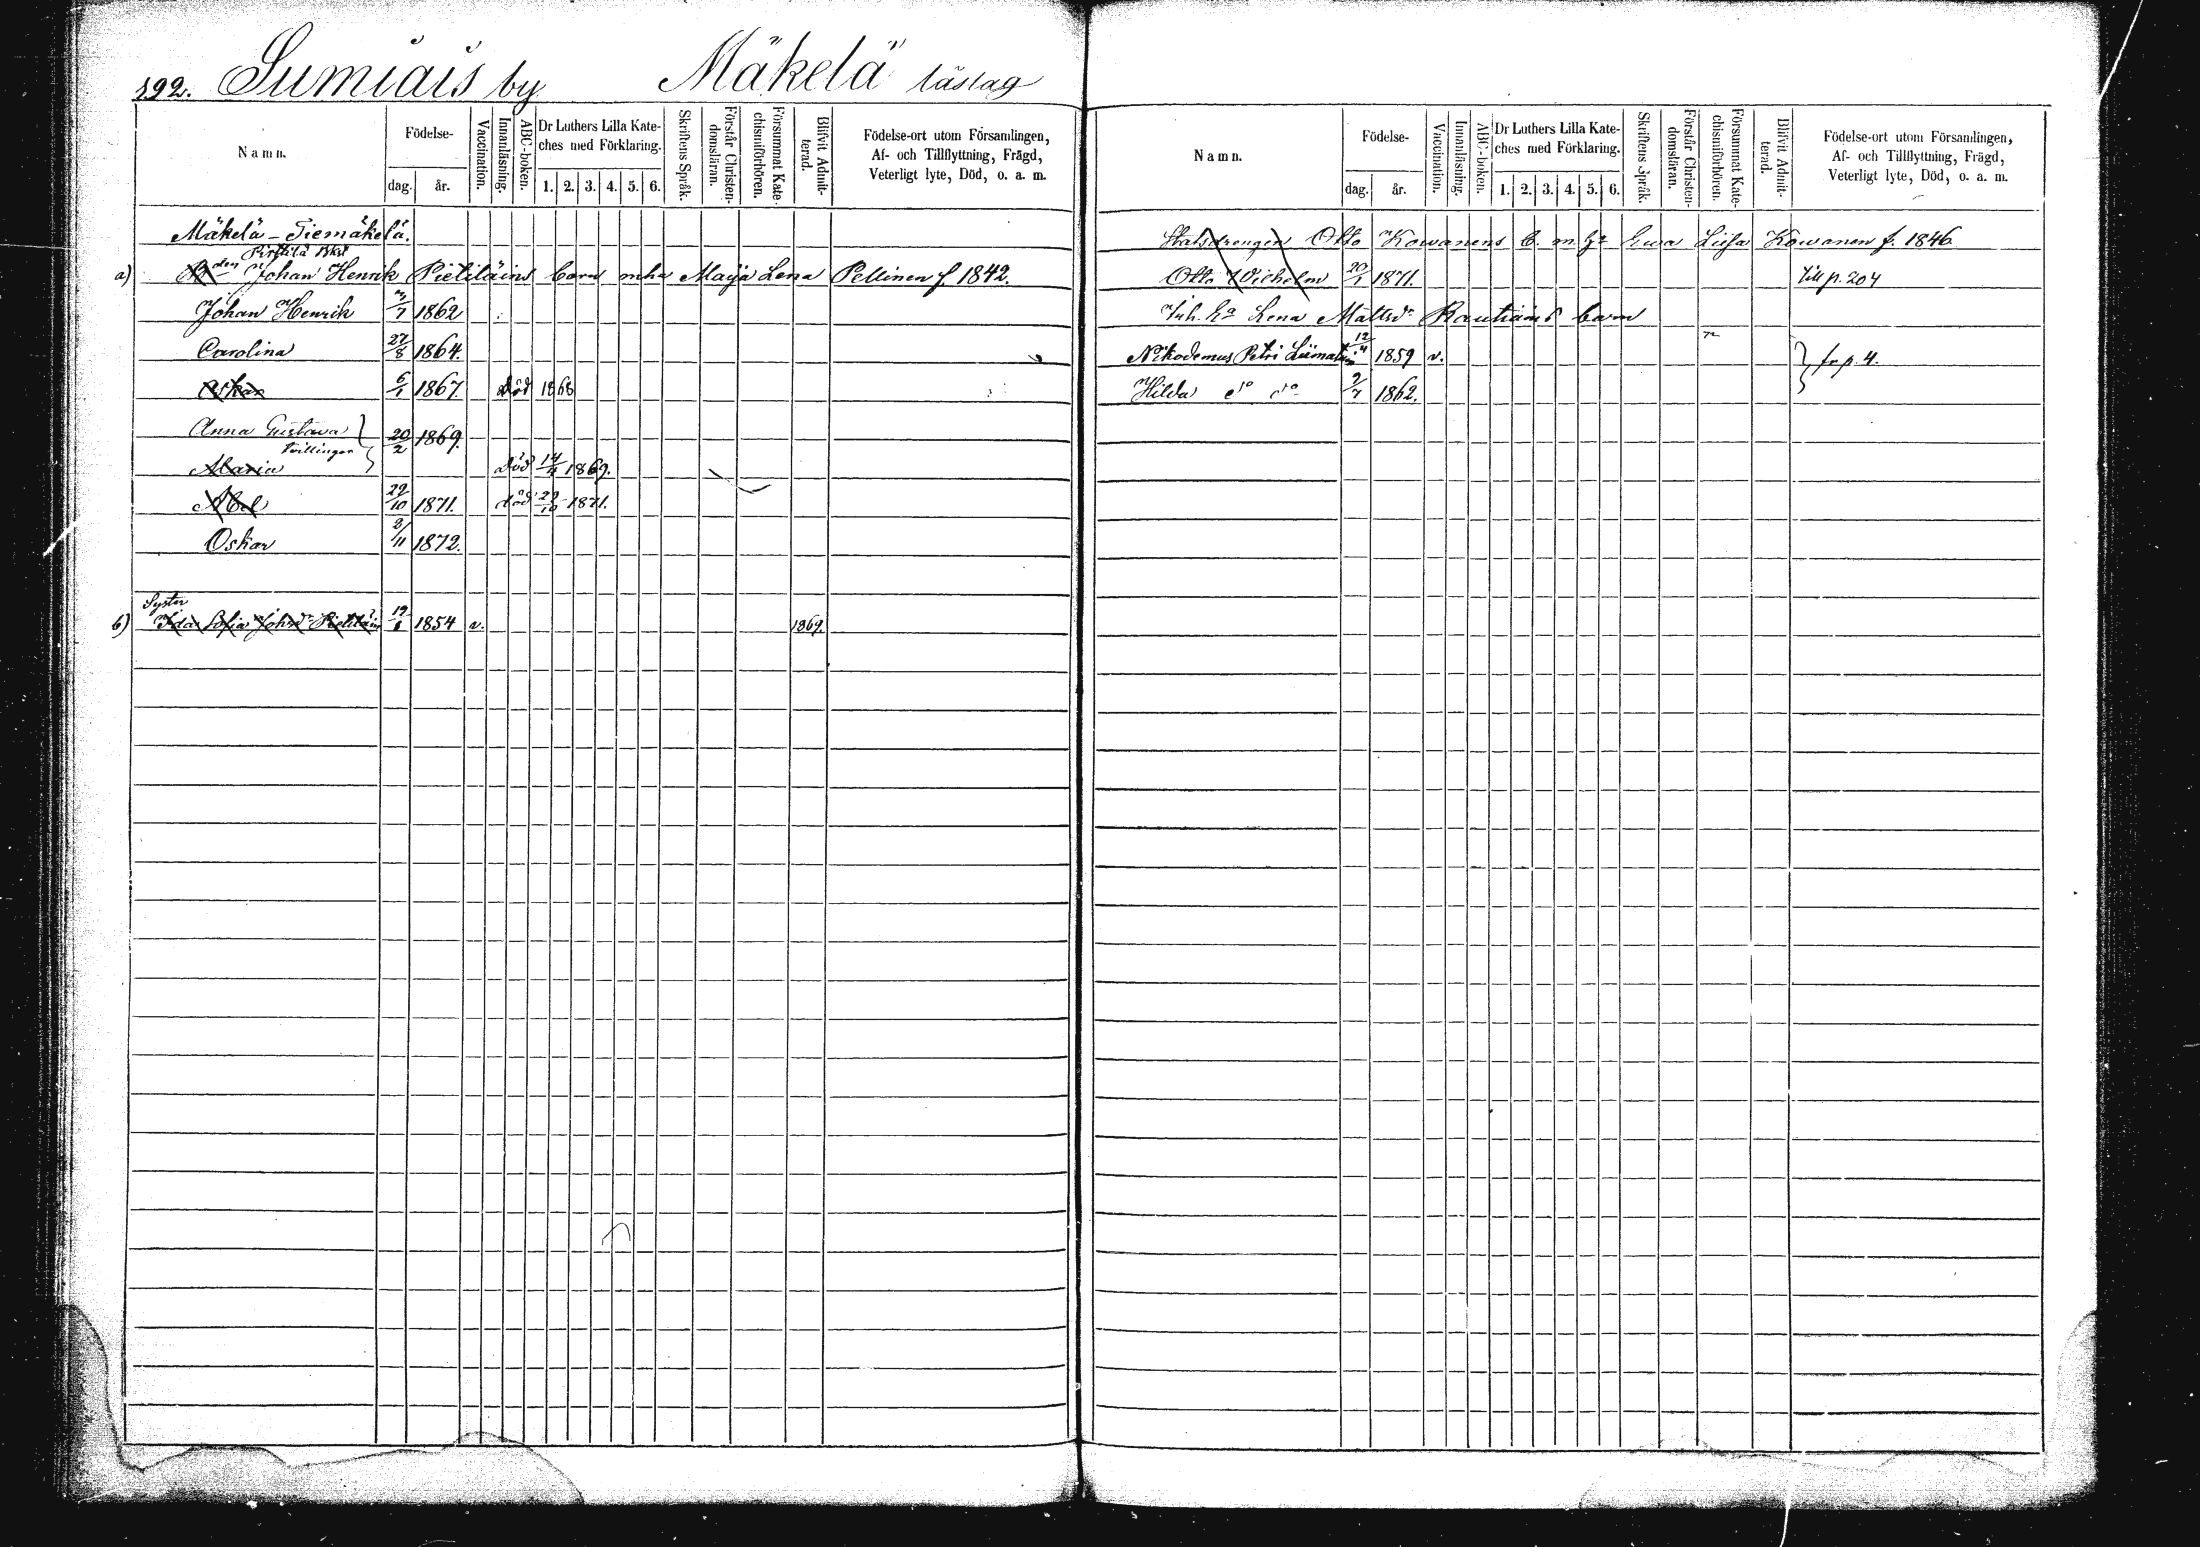 192. Sumiais by Mäkelä läslag
Namn.
Födelse-
dag. år.
Vaccination.
Innanläsning.
ABC-boken.
Dr Luthers Lilla Kate-
ches med Förklaring.
1. 2. 3. 4. 5. 6.
Skriftens Språk.
Förstår Christen-
domsläran.
Försummat Kate-
chismiförhören.
Blifvit Admit-
terad.
Födelse-ort utom Församlingen,
Af- och Tillflyttning, Frägd,
Veterligt lyte, Död, o. a. m.
Mäkelä - Tiemäkelä.
a) Johan Henrik Pietiläins barn mha Maija Lena Pellinen f. 1842.
Johan Henrik 1862
Carolina 27/8 1864.
Oskar 6/1 1867. död 1868
Anna Gustava } 20/2 1869.
tvillingar
Maria död 14/4 1869.
Abel 29/10 1871. död 29/10 1871.
Oskar 2/11 1872.
Syster
b) Ida Sofia Johsdr Pietiläin 19/1 1854 v. 1869.
Namn.
Födelse-
dag. år.
Vaccination.
Innanläsning.
ABC-boken.
Dr Luthers Lilla Kate-
ches med Förklaring.
1. 2. 3. 4. 5. 6.
Skriftens Språk.
Förstår Christen-
domsläran.
Försummat Kate-
chismiförhören.
Blifvit Admit-
terad.
Födelse-ort utom Församlingen,
Af- och Tillflyttning, Frägd,
Veterligt lyte, Död, o. a. m.
Statsdrengen Otto Kowanens b. m. hu Ewa Liisa Kowanen f. 1846
Otto Wilhelm 20/1 1871. till p. 204
Inh. Ea Lena Mattsdr Rautiains barn
Nikodemus Petri Liimatain 12/4 1859 v. } fr p. 4.
Hilda do do 9/7 1862.